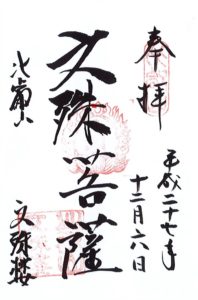 奉拝
平成二十七年
十二月六日
文殊菩薩
比叡山
文殊楼